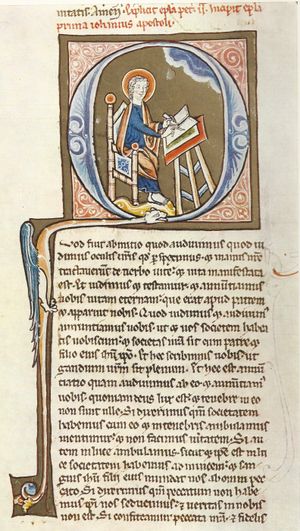 nitatis. Amen. Explicit epla petri .ii. Incipit epla
prima iohannis apostoli.
Quod fuit ab initio quod audiuimus quod ui
dimus oculis nr̄is qd̄ ꝑspeximus. & manus nr̄e
tractauerunt de uerbo uite. & uita manifesta
est. & uidimus & testamur & annūtiamus
uobis uitam eternam. que erat apud patrem
& apparuit nobis. Quod uidimus & audiuimꝰ
annuntiamus uobis. ut & uos societatem habea
tis nobiscum. & societas nr̄a sit cum patre &
filio eius ihū xp̄o. & hec scribimus uobis ut
gaudium ur̄m sit plenum. Et hec est annū
tiatio quam audiuimus ab eo & annuntiamꝰ
uobis. quoniam deus lux est. & tenebre in eo
non sunt ulle. Si dixerimus qm̄ societatem
habemus cum eo & in tenebris ambulamus
mentimur & non facimus ueritatem. Si au
tem in luce ambulamus. sicut & ipse est in lu
ce societatem habemus ad inuicem. & san
guis ihū filii eius mundat nos ab omni pec
cato. Si dixerimus qm̄ peccatum non habem
ipsi nos seducimus. & ueritas in nobis
non est. Si confiteamur peccata nr̄a. fidelis